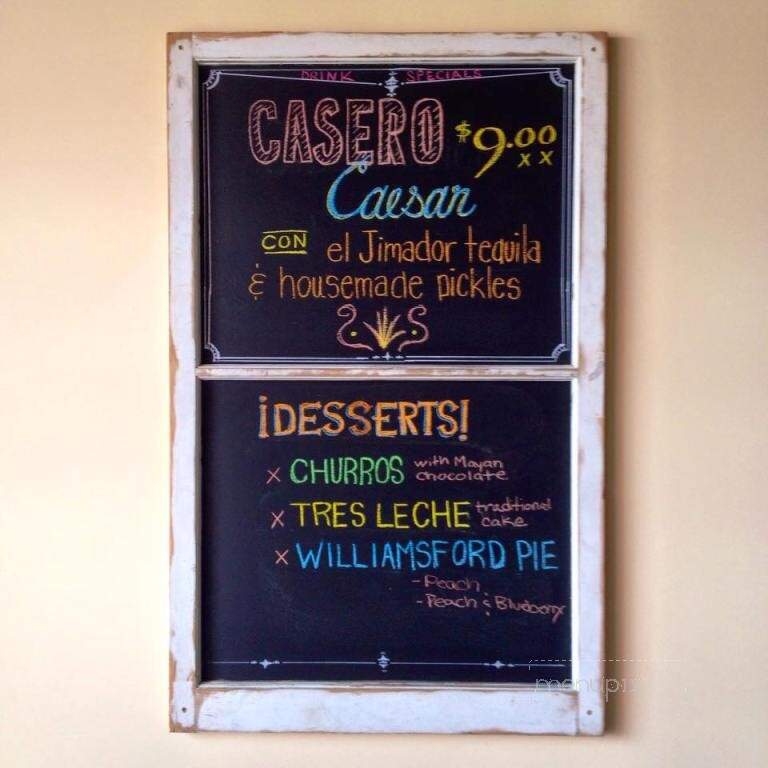 DRINK SPECIALS
CASERO $9.00
xx
Caesar
CON el Jimador tequila
& housemade pickles
¡DESSERTS!
x CHURROS with Mayan
chocolate
x TRES LECHE traditional
cake
x WILLIAMSFORD PIE
- Peach
- Peach & Blueberry